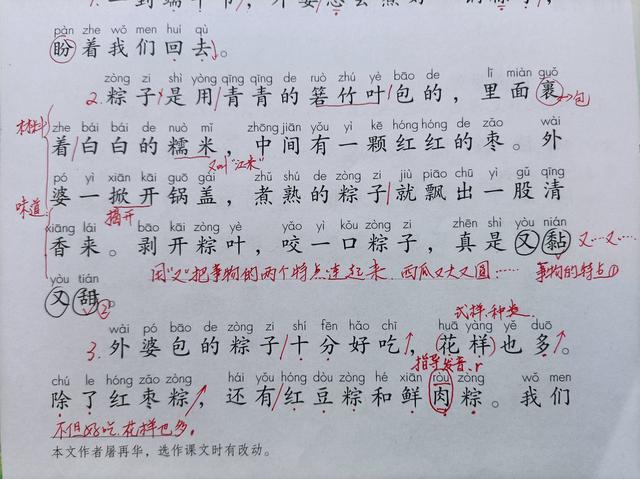 pàn zhe wǒ men huí qù
盼着我们回去。
zòng zi shì yòng qīng qīng de ruò zhú yè bāo de lǐ miàn guǒ
2. 粽子是用青青的箬竹叶包的，里面裹 包
材料
zhe bái bái de nuò mǐ zhōng jiān yǒu yì kē hóng hóng de zǎo wài
着白白的糯米，中间有一颗红红的枣。外
又叫“江米”
pó yì xiān kāi guō gài zhǔ shú de zòng zi jiù piāo chū yì gǔ qīng
味道
婆一掀开锅盖，煮熟的粽子就飘出一股清
揭开
xiāng lái bāo kāi zòng yè yǎo yì kǒu zòng zi zhēn shì yòu nián
香来。剥开粽叶，咬一口粽子，真是又黏 又…又…
yòu tián
用“又”把事物的两个特点连起来 西瓜又大又圆…… 事物的特点①
又甜 ②
式样、种类
wài pó bāo de zòng zi shí fēn hǎo chī huā yàng yě duō
3. 外婆包的粽子十分好吃，花样也多。
指导发音 r
chú le hóng zǎo zòng hái yǒu hóng dòu zòng hé xiān ròu zòng wǒ men
除了红枣粽，还有红豆粽和鲜肉粽。我们
不但好吃 花样也多。
本文作者屠再华，选作课文时有改动。